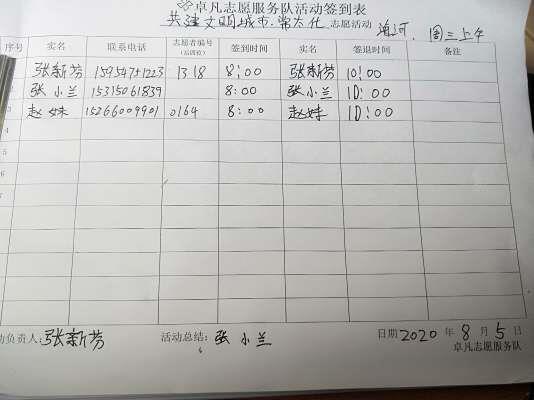 卓凡志愿服务队活动签到表
共建文明城市·常态化 志愿活动 周三上午
序号 实名 联系电话 志愿者编号(后四位) 签到时间 实名 签退时间 备注
张新芳 15954751223 1318 8:00 张新芳 10:00
张小兰 15315061839 8:00 张小兰 10:00
3 赵妹 15266009901 0164 8:00 赵妹 10:00
4
5
6
7
动负责人:张新芳 活动总结:张小兰 日期 2020 年 8 月 5 日
卓凡志愿服务队